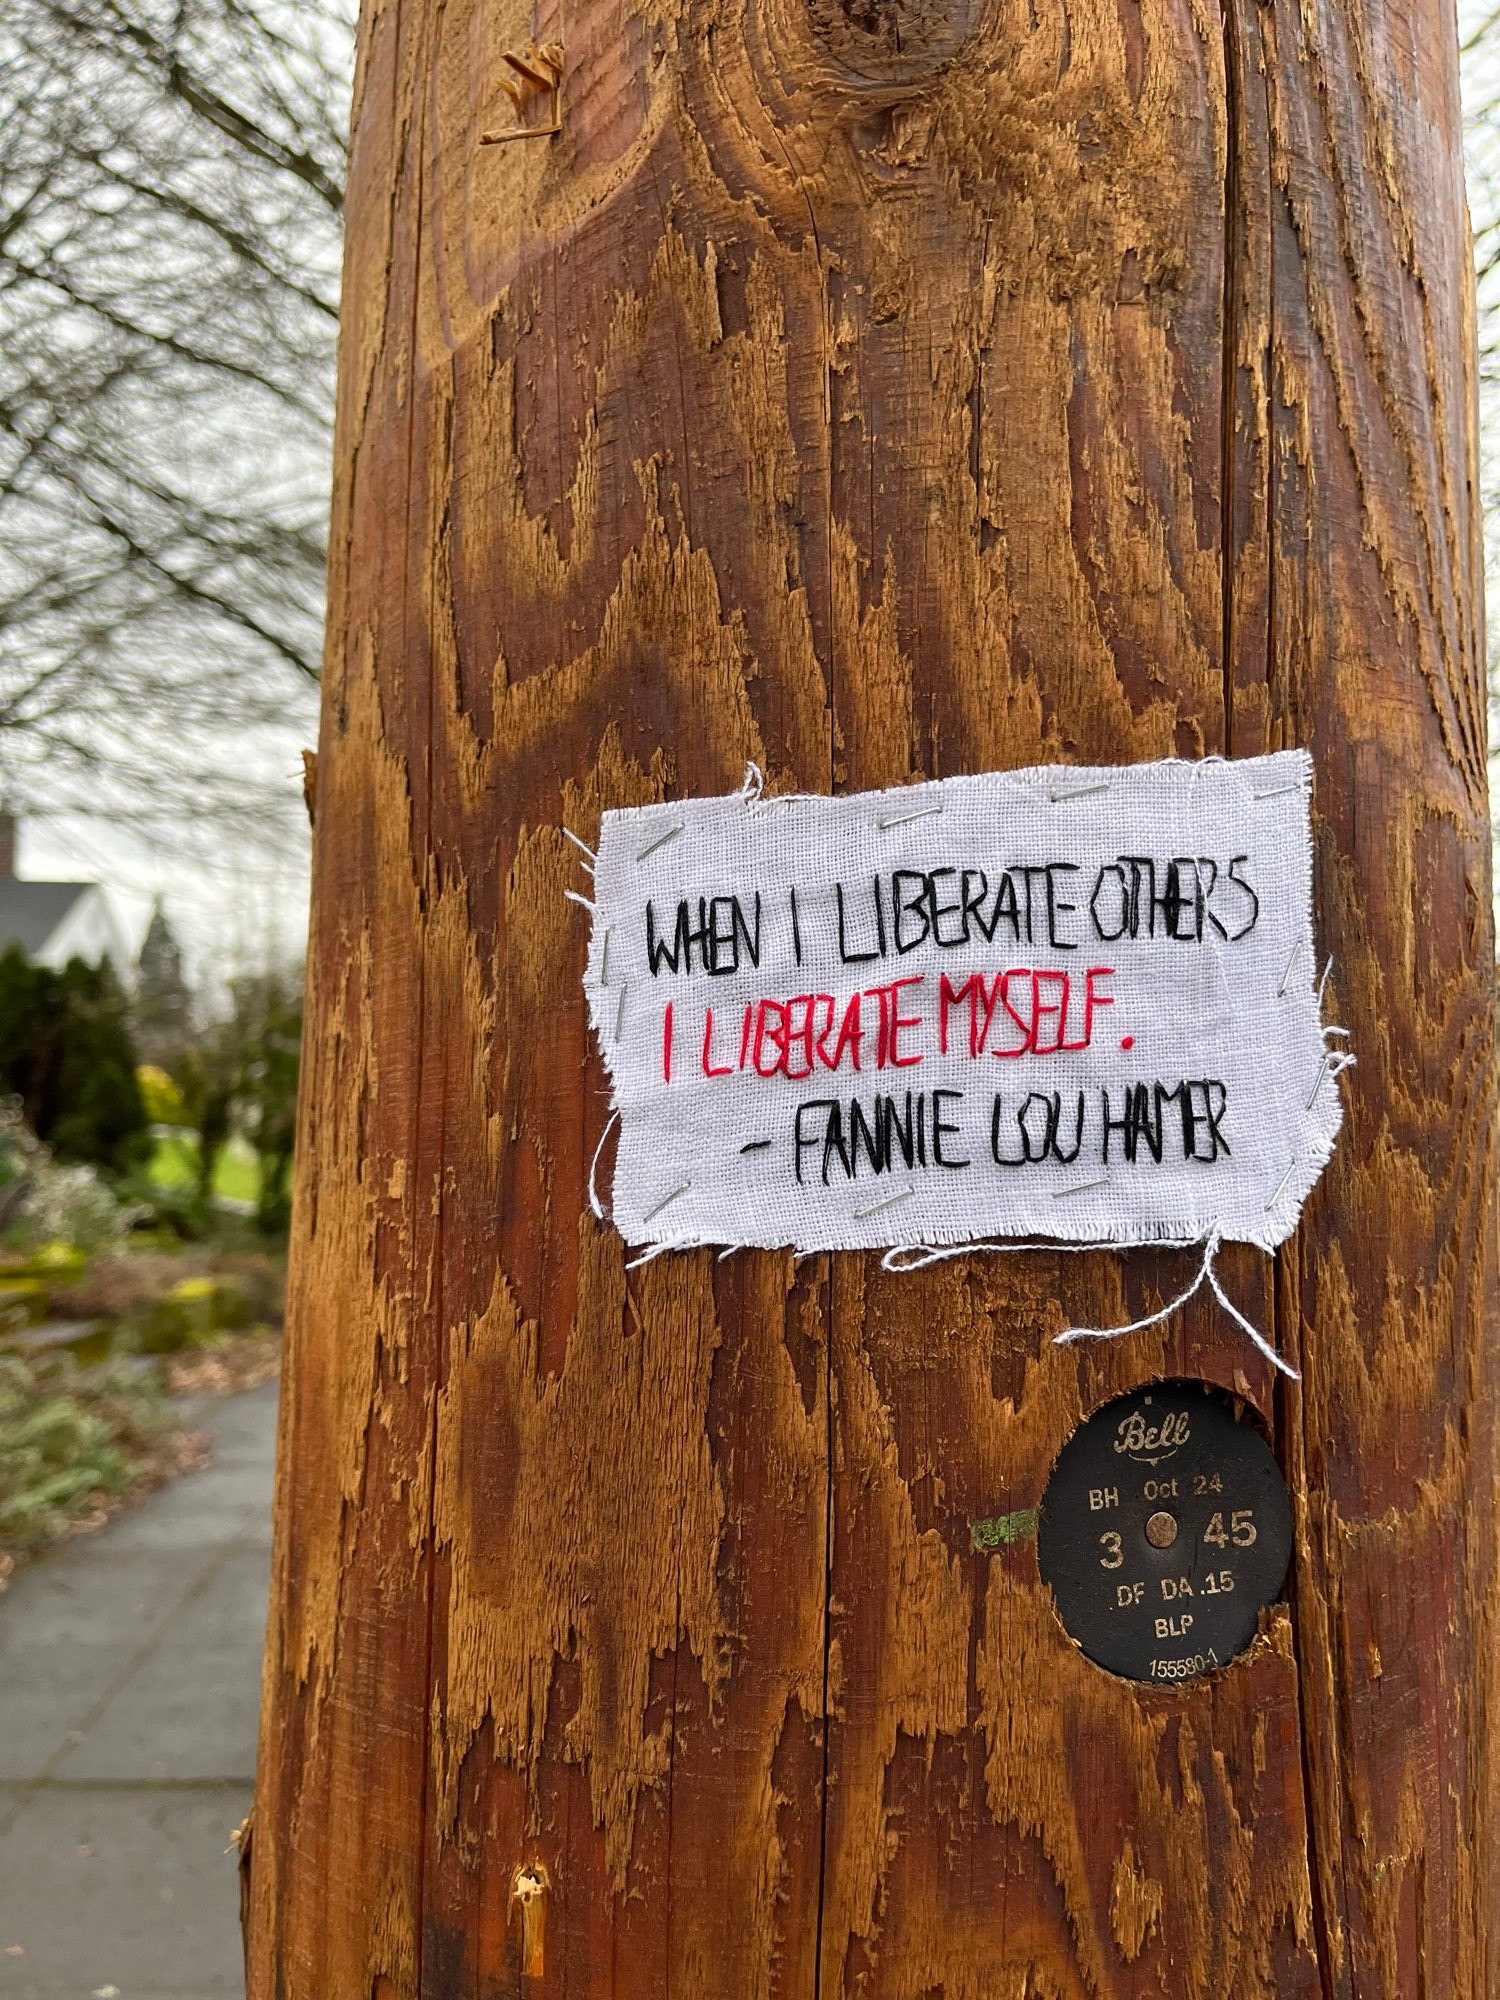 WHEN I LIBERATE OTHERS
I LIBERATE MYSELF.
- FANNIE LOU HAMER
Bell
BH Oct 24
3 45
DF DA .15
BLP
155580-1